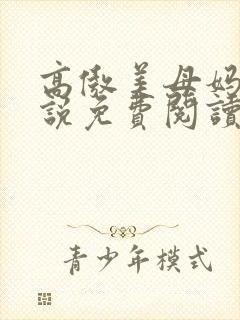 高傲美母妈
說免費閱讀
青少年模式